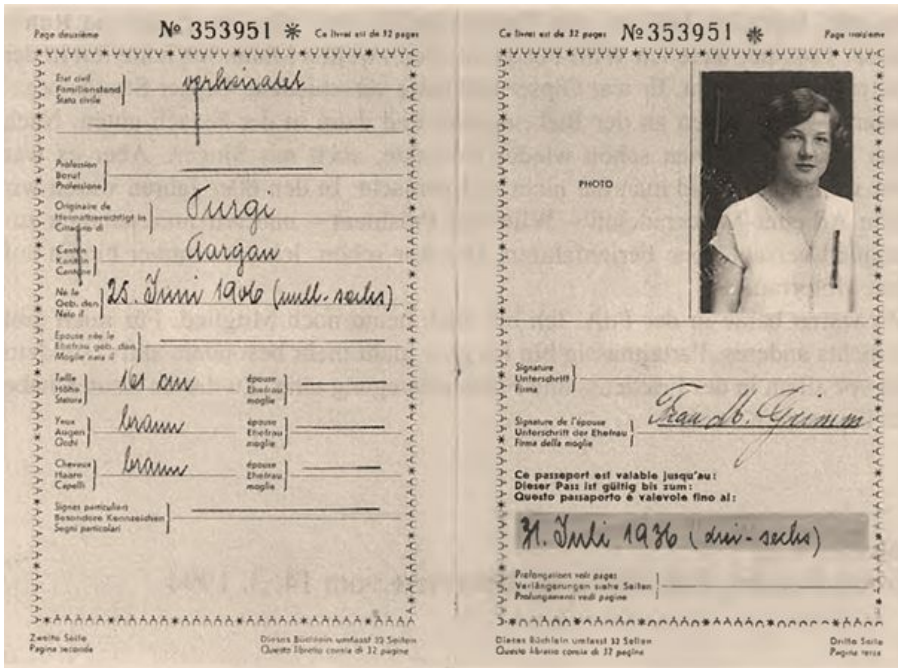 Page deuxième
№ 353951 *
Ce livret est de 32 pages
Etat civil
Familienstand
Stato civile
verheiratet
Profession
Beruf
Professione
Originaire de
Heimatberechtigt in
Cittadino di
Turgi
Canton
Kanton
Cantone
Aargau
Né le
Geb. den
Nato il
25. Juni 1906 (null-sechs)
Epouse née le
Ehefrau geb. den
Moglie nata il
Taille
Höhe
Statura
161 cm
épouse
Ehefrau
moglie
Yeux
Augen
Occhi
braun
épouse
Ehefrau
moglie
Cheveux
Haare
Capelli
braun
épouse
Ehefrau
moglie
Signes particuliers
Besondere Kennzeichen
Segni particolari
Zweite Seite
Pagina seconda
Dieses Büchlein umfasst 32 Seiten
Questo libretto consta di 32 pagine
Ce livret est de 32 pages
№ 353951 *
Page troisième
PHOTO
Signature
Unterschrift
Firma
Signature de l'épouse
Unterschrift der Ehefrau
Firma della moglie
Frau M. Grimm
Ce passeport est valable jusqu'au:
Dieser Pass ist gültig bis zum:
Questo passaporto è valevole fino al:
31. Juli 1936 (drei-sechs)
Prolongations voir pages
Verlängerungen siehe Seiten
Prolungamenti vedi pagine
Dieses Büchlein umfasst 32 Seiten
Questo libretto consta di 32 pagine
Dritte Seite
Pagina terza